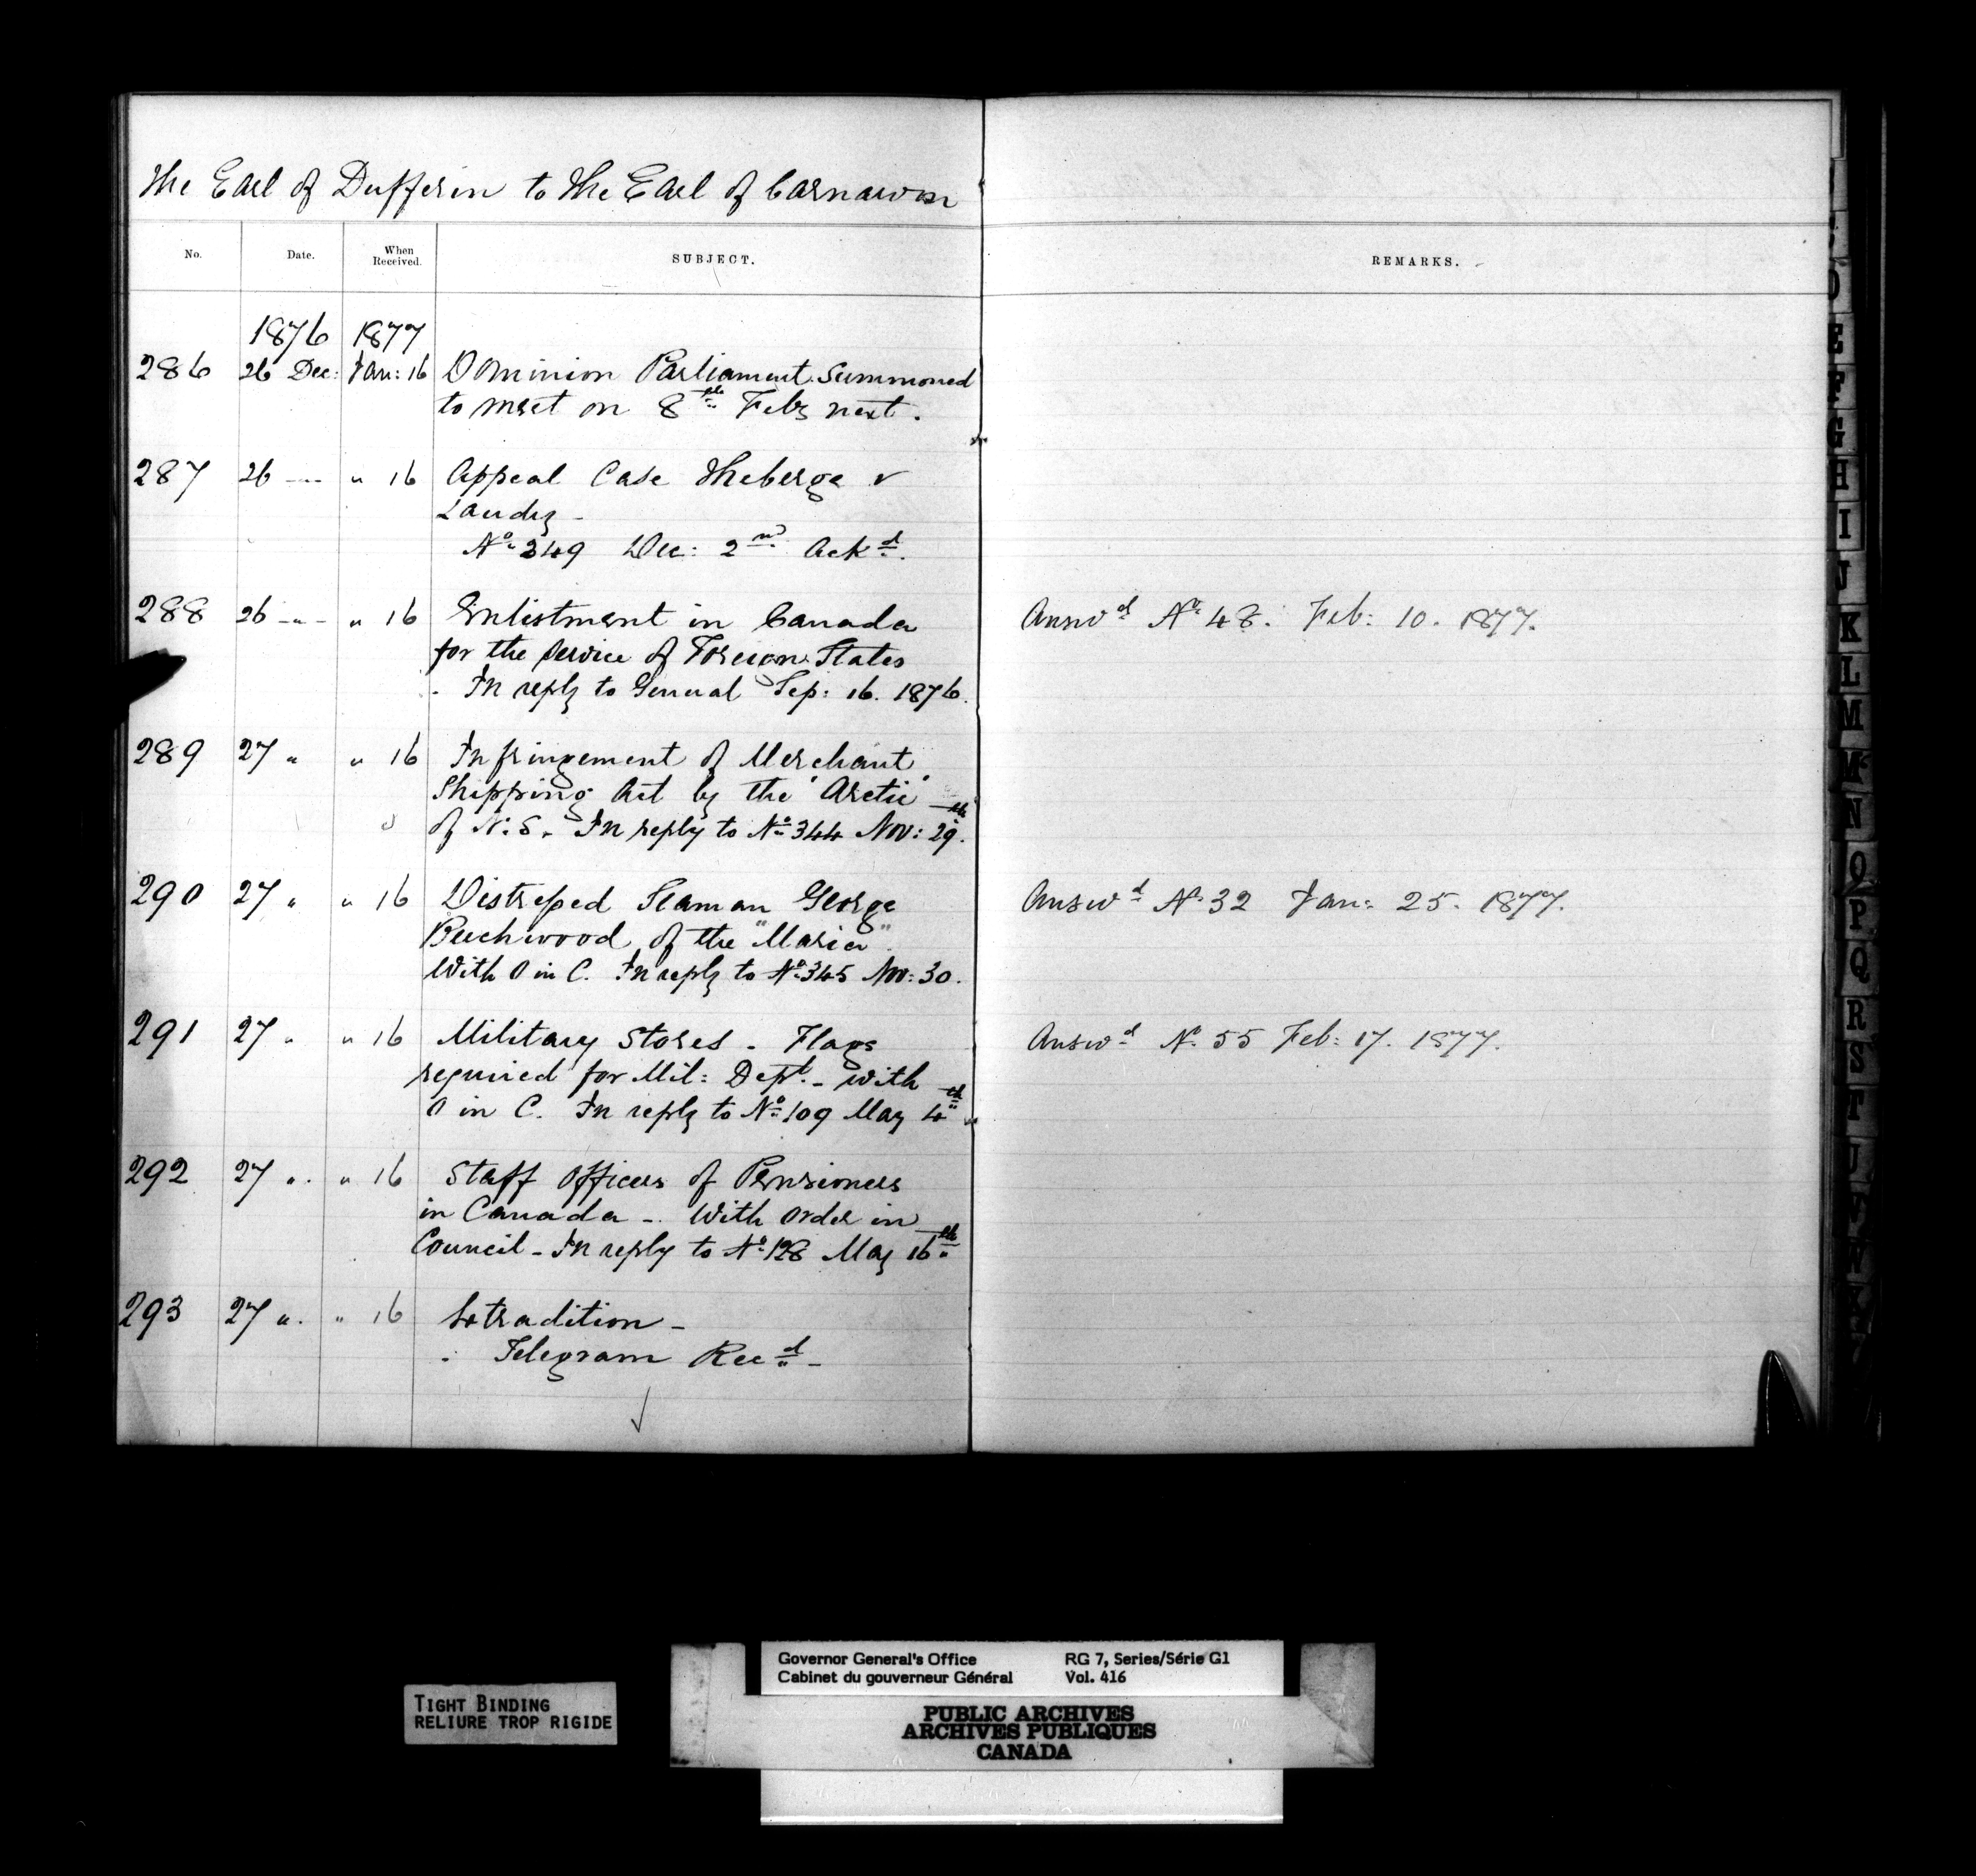 The Earl of Dufferin to The Earl of Carnarvon
No. Date. When Received. SUBJECT. REMARKS.
1876 1877
286 26 Dec: Jan: 16 Dominion Parliament summoned
to meet on 8th Feby next.
287 26 -"- " 16 Appeal Case Theberge v
Laudry -
No 349 Dec: 2nd Ackd.
288 26 -"- " 16 Enlistment in Canada Answd No 48. Feb: 10. 1877.
for the service of Foreign States
- In reply to General Sep: 16. 1876.
289 27 " " 16 Infringement of Merchant
Shipping Act by the "Arctic"
of N.S. In reply to No 344 Nov: 29th.
290 27 " " 16 Distressed Seaman George Answd No 32 Jan: 25. 1877.
Beechwood of the "Maria".
With O in C. In reply to No 345 Nov: 30.
291 27 " " 16 Military Stores - Flags Answd No 55 Feb: 17. 1877.
required for Mil: Dept. - with
O in C. In reply to No 109 May 4th
292 27 " " 16 Staff Officers of Pensioners
in Canada - With Order in
Council - In reply to No 128 May 16th
293 27 " " 16 Extradition -
Telegram Recd -
E
F
G
H
I
J
K
L
M
Mc
N
O
P
Q
R
S
T
Governor General's Office RG 7, Series/Série G1
Cabinet du gouverneur Général Vol. 416
TIGHT BINDING
RELIURE TROP RIGIDE
PUBLIC ARCHIVES
ARCHIVES PUBLIQUES
CANADA